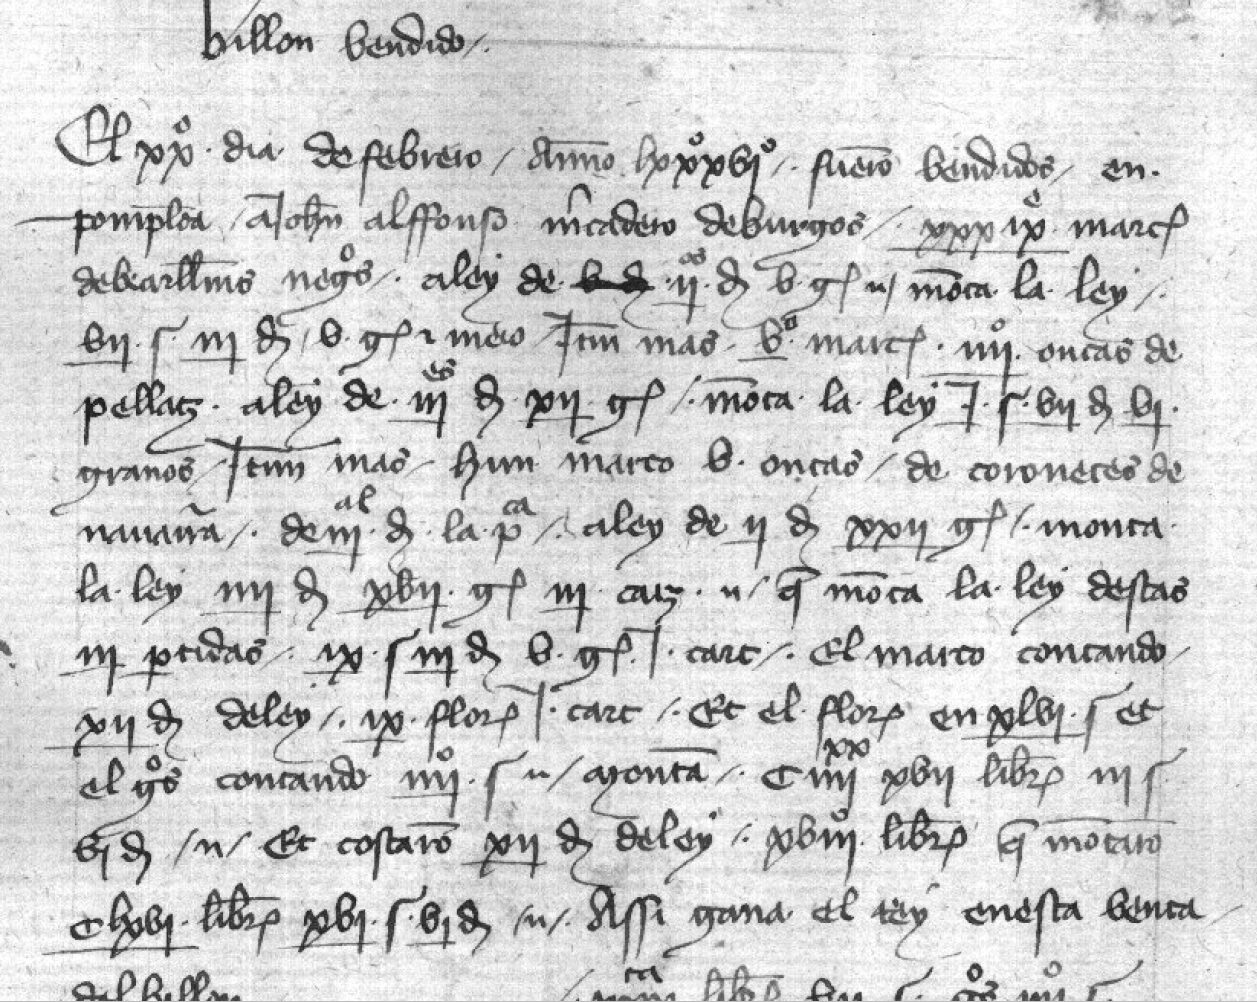 billon bendido /.
El xxº. dia de febrero / Anno lxxºxviº /. fuero bendidos / en.
pomploa / a Johan alffonso mcadero de burgos /. xxx ixº marcs
de bearllms negos /. a ley de . iios . d b. gs n / mota la ley /.
vii . s . iii d / b. gs z meio / Itm mas . vº marcs . iiiiº. oncas de
pellatz . a ley de . iiies d xii gs /. mota la ley J . s . vii d vi.
granos /. Itm mas / hun marco b. oncas / de coronetes de
nauarra /. de iiial . d . la pca /. a ley de ii d xxii gs /. monta
la ley iiii d xvii . gs iii cartz . n / q mota la ley destas
iii ptidas /. ix . s iii d b. gs . J . cart /. El marco contando /
xii d de ley /. ix . flors J . cart /. Et el flors en xlvi . s et
el gos contando iiiiº . s n / monta /. C iiiixx xvii librs iii s
vi d / n / Et costaro xii d de ley /. xviiiº . librs q motaro
C lxvi . librs xvi . s . vi d / n /. Assi gana el rey en esta benta /
del billon librs vii . s .